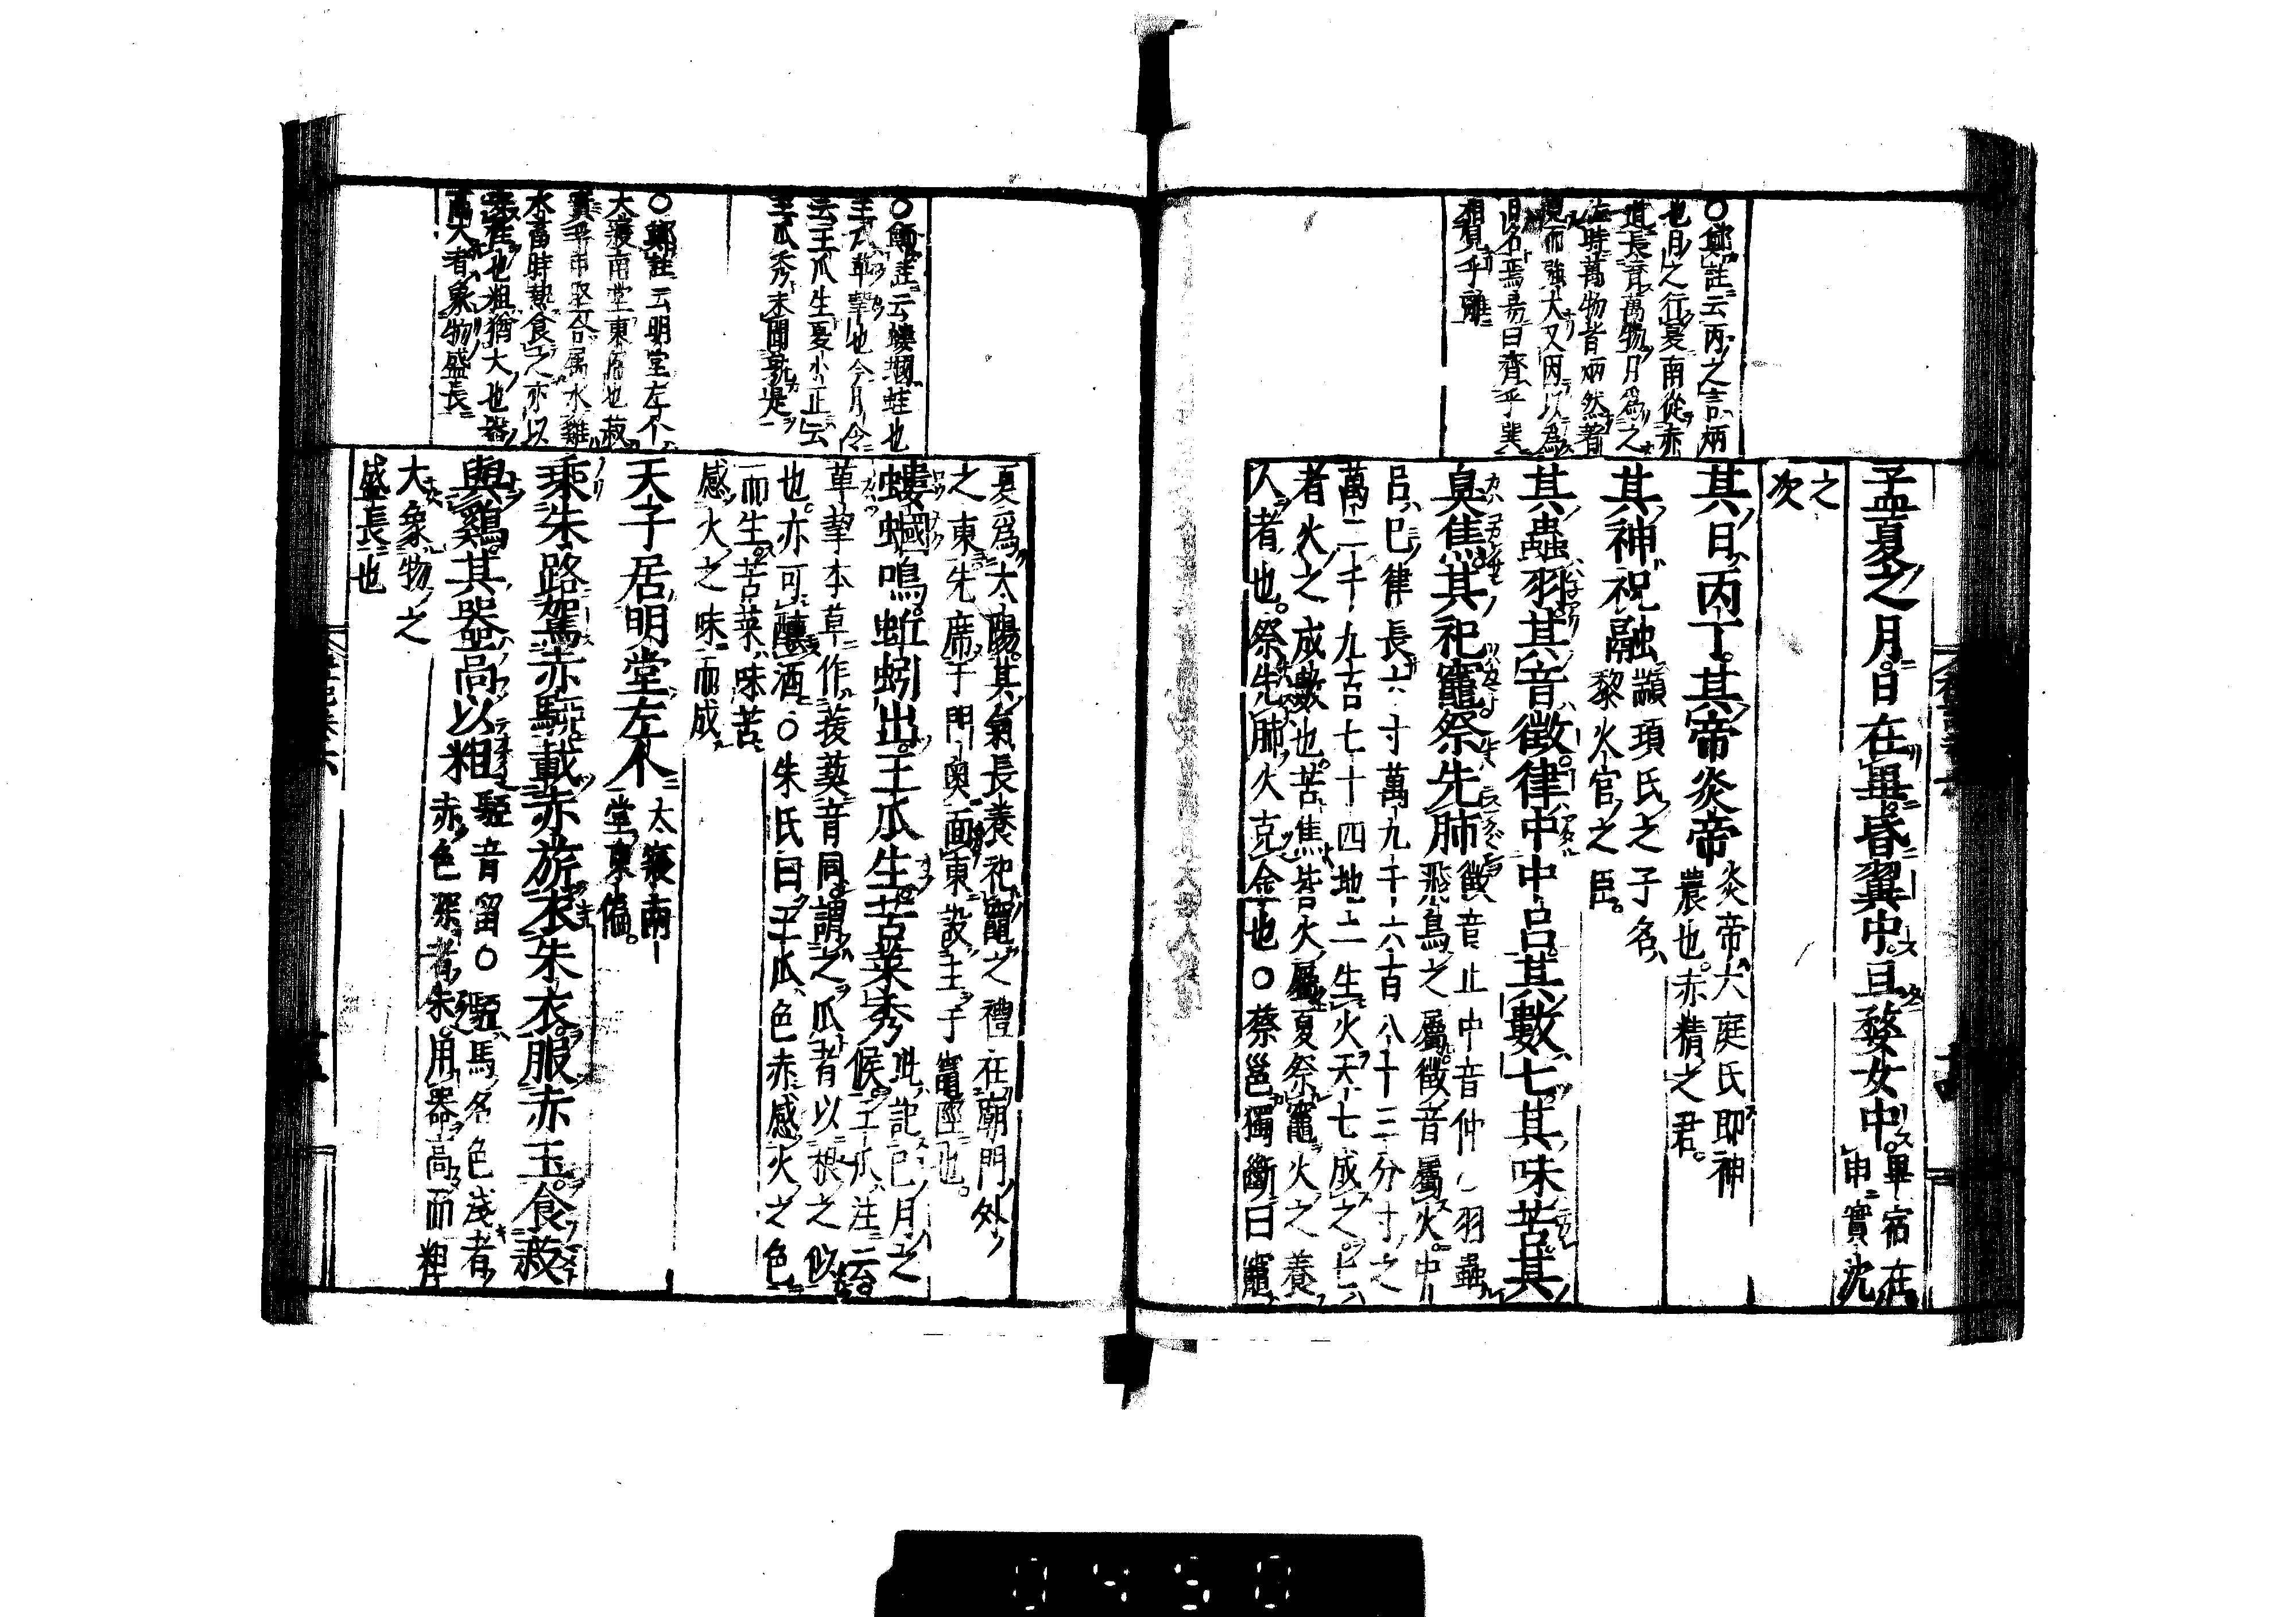 孟夏之月日在畢昏翼中旦婺女中畢宿在
申實沈
之
次
其日丙丁其帝炎帝炎帝大庭氏即神
農也赤精之君
其神祝融顓頊氏之子名
黎火官之臣
其蟲羽其音徵律中中呂其數七其味苦其
臭焦其祀竈祭先肺徵音止中音仲〇羽蟲
飛鳥之屬徵音屬火中
呂巳律長六寸萬九千六百八十三分寸之
萬二千九百七十四地二生火天七成之七
者火之成數也苦焦皆火屬夏祭竈火之養
人者也祭先肺火克金也〇蔡邕獨斷曰竈
〇鄭註云丙之言炳
也日之行夏南從赤
道長育萬物月為之
佐時萬物皆炳然著
見而強大又因以為
日名焉易曰齊乎巽
相見乎離
夏爲太陽其氣長養祀竈之禮在廟門外
之東先席于門奥面東設主于竈陘也
螻蟈鳴蚯蚓出王瓜生苦菜秀此記巳月之
候王瓜注云
草挈本草作菝葜音同謂之瓜者以根之似
也亦可釀酒〇朱氏曰王瓜色赤感火之色
而生苦菜味苦
感火之味而成
天子居明堂左个太寢南
堂東偏
乘朱路駕赤駵載赤旂衣朱衣服赤玉食菽
與雞其器高以粗駵音留〇駵馬名色淺者
赤色深者朱用器高而粗
大象物之
盛長也
〇鄭註云螻蟈蛙也
王瓜萆挈也今月令
云王瓜生夏小正云
王瓜秀未聞孰是
〇鄭註云明堂左个
大寢南堂東偏也菽
實孚甲堅合屬水雞
木畜時熱食之亦以
安性也粗猶大也器
高大者象物盛長
0450